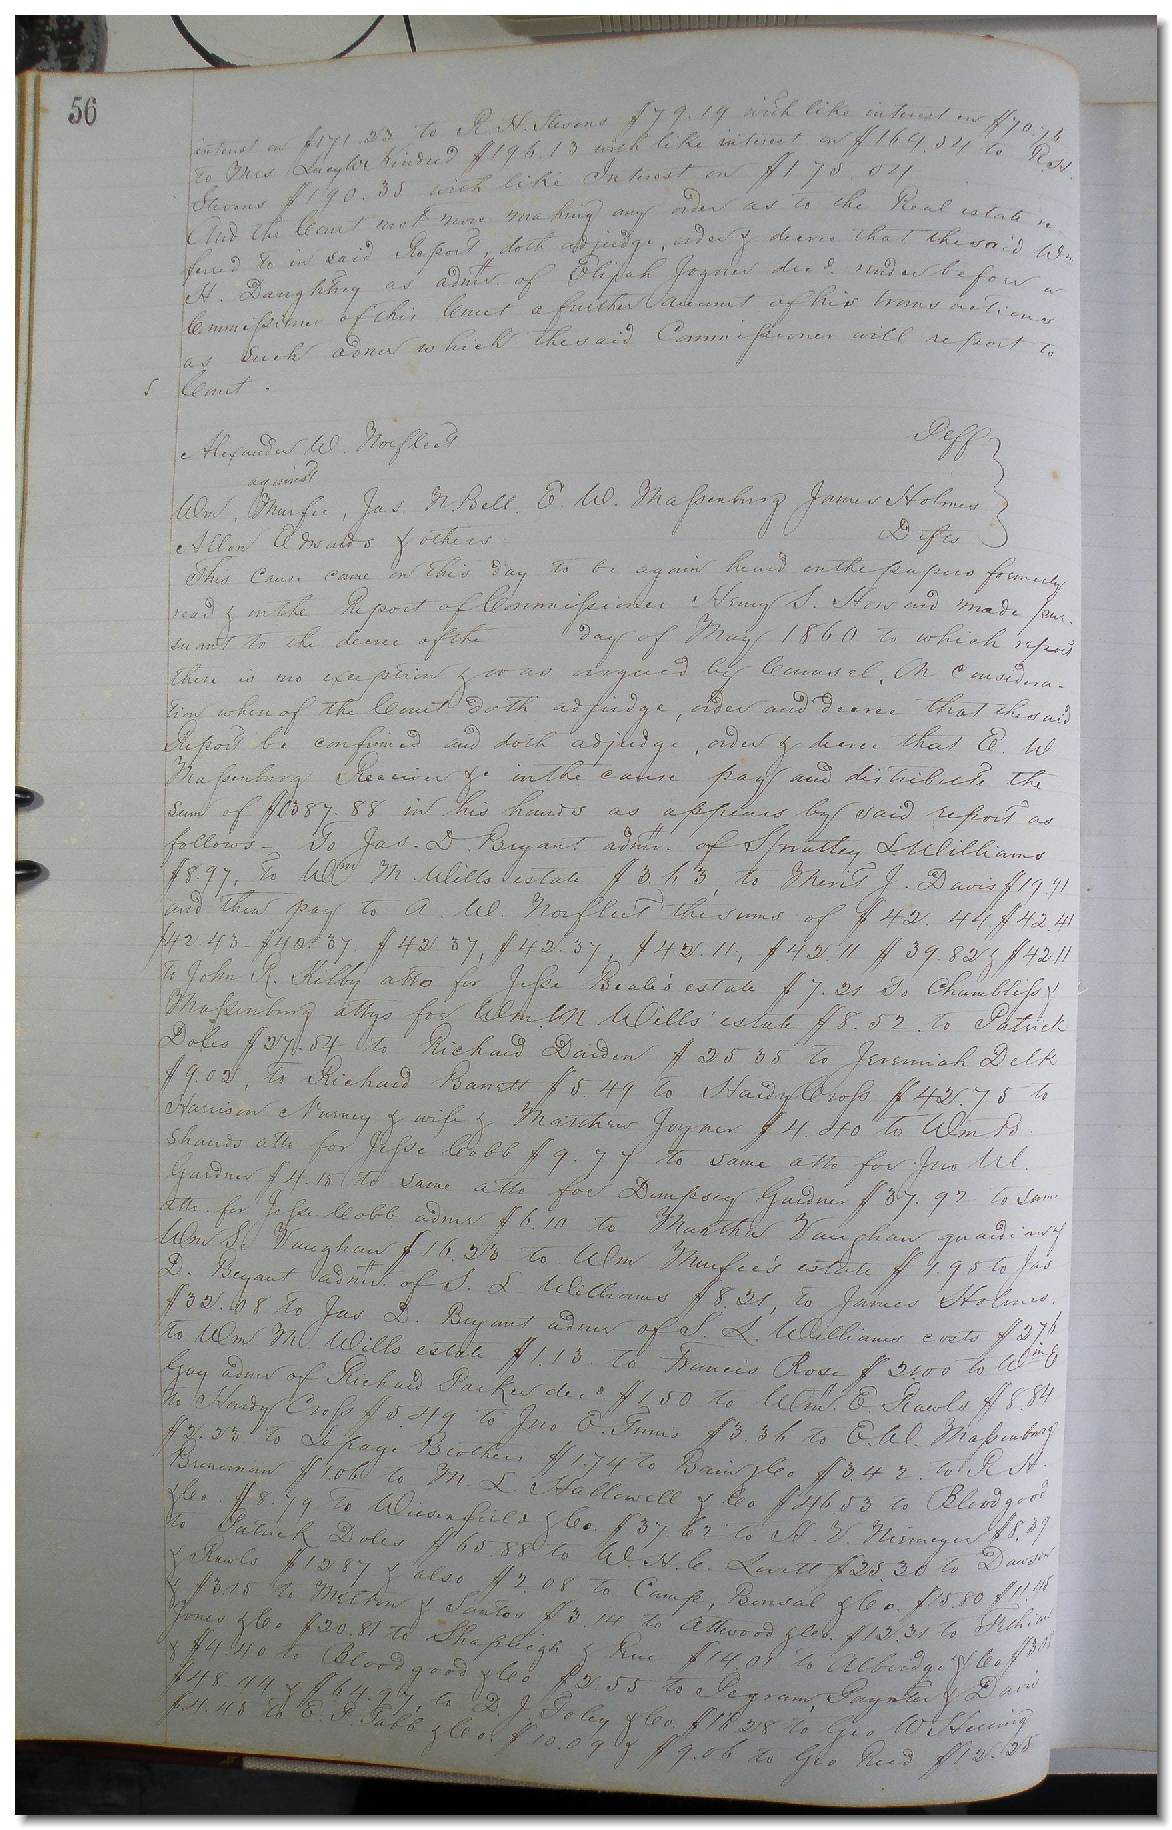 56
interest on $171.23 to R. H. Stevens $79.19 with like interest on $70.76
to Mrs Lucy W Kindred $196.13 with like interest on $164.54 to R. H.
Stevens $190.35 with like Interest on $175.04
And the Court not now making any order as to the Real estate re-
ferred to in said Report, doth adjudge, order & decree that the said Wm
H. Daughtrey as admr. of Elijah Joyner decd. render before a
Commissioner of this Court a further account of his transactions
as such admr which the said Commissioner will report to
Court.
Alexander W. Norfleet Plff
against
Wm. Murfee, Jas. N Bell, E. W. Massenburg James Holmes
Allen Edwards & others Defts
This cause came on this day to be again heard on the papers formerly
read & on the Report of Commissioner Henry S. Howard made pur-
suant to the decree of the day of May 1860 to which report
there is no exception & was argued by Counsel. On considera-
tion whereof the Court doth adjudge, order and decree that the said
Report be confirmed and doth adjudge, order & decree that E. W
Massenburg Receiver &c in the cause pay and distribute the
sum of $1387.88 in his hands as appears by said report as
follows- To Jas. D. Bryant admr. of Spratley L Williams
$8.97, to Wm M Wills estate $3.63, to Merit J. Davis $19.91
and then pay to A. W. Norfleet the sums of $42.44 $42.41
42.43 $42.37. $42.37, $42.37, $42.11, $42.11 $39.82 & $42.11
to John R. Kilby atto for Jesse Beale's estate $7.21 To Chambliss &
Massenburg attys for Wm. M Wills' estate $8.52 to Patrick
Doles $27.54 to Richard Darden $25 35 to Jeremiah Delk
$9.02, to Richard Barrett $5.49 to Hardy Cross $42.75 to
Harrison Nurney & wife & Matthew Joyner $4.40 to Wm B.
Shands atto for Jesse Cobb $9.77 to same atto for Jno W.
Gardner $4.15 to same atto for Dempsey Gardner $37.92 to same
atto. for Jesse Cobb admr $6.10 to Martha Vaughan guardian of
Wm S. Vaughan $16.23 to Wm Murfee's estate $1.95 to Jas
D. Bryant admr. of S. L Williams $8.21, to James Holmes.
$32.08 to Jas D. Bryant admr of S. L. Williams costs $2.76
to Wm M Wills estate $1.13 to Francis Rose $21.00 to Wm E
Guy admr of Richard Parker decd $1.50 to Wm. E. Rawls $8.84
to Hardy Cross $5.49 to Jno E. Tums $3.36 to E. W. Massenburg
$2.23 to Lepage Brothers $1.74 to Bain & Co $3.42. to R. H.
Brenaman $1.06 to M. L Hallowell & Co $46 53 to Bloodgood
& Co. $8.79 to Wiesenfield & Co. $37.62 to H. V. Niemeyer $8.39
to Patrick Doles $65.88 to W. H. C. Lovett $25.30 to Dawson
& Rawls $12 87 & also $2.08 to Camp, Bonsal & Co. $15.80 $11.48
& $3.15 to Melton & Santos $3.14 to Attwood & Co. $12.31 to
Jones & Co $20.81 to Shapleigh & Rue $14.01 to Alberdge & Co
& $4.40 to Bloodgood & Co $2.55 to Pegram, Paynter & Davis
$48.44 & $64.97, to D. J. Foley & Co $16 28 to Geo W Herring
$4.45 to E. P. Tabb & Co. $10.09 & $9.06 to Geo Reed $12.25